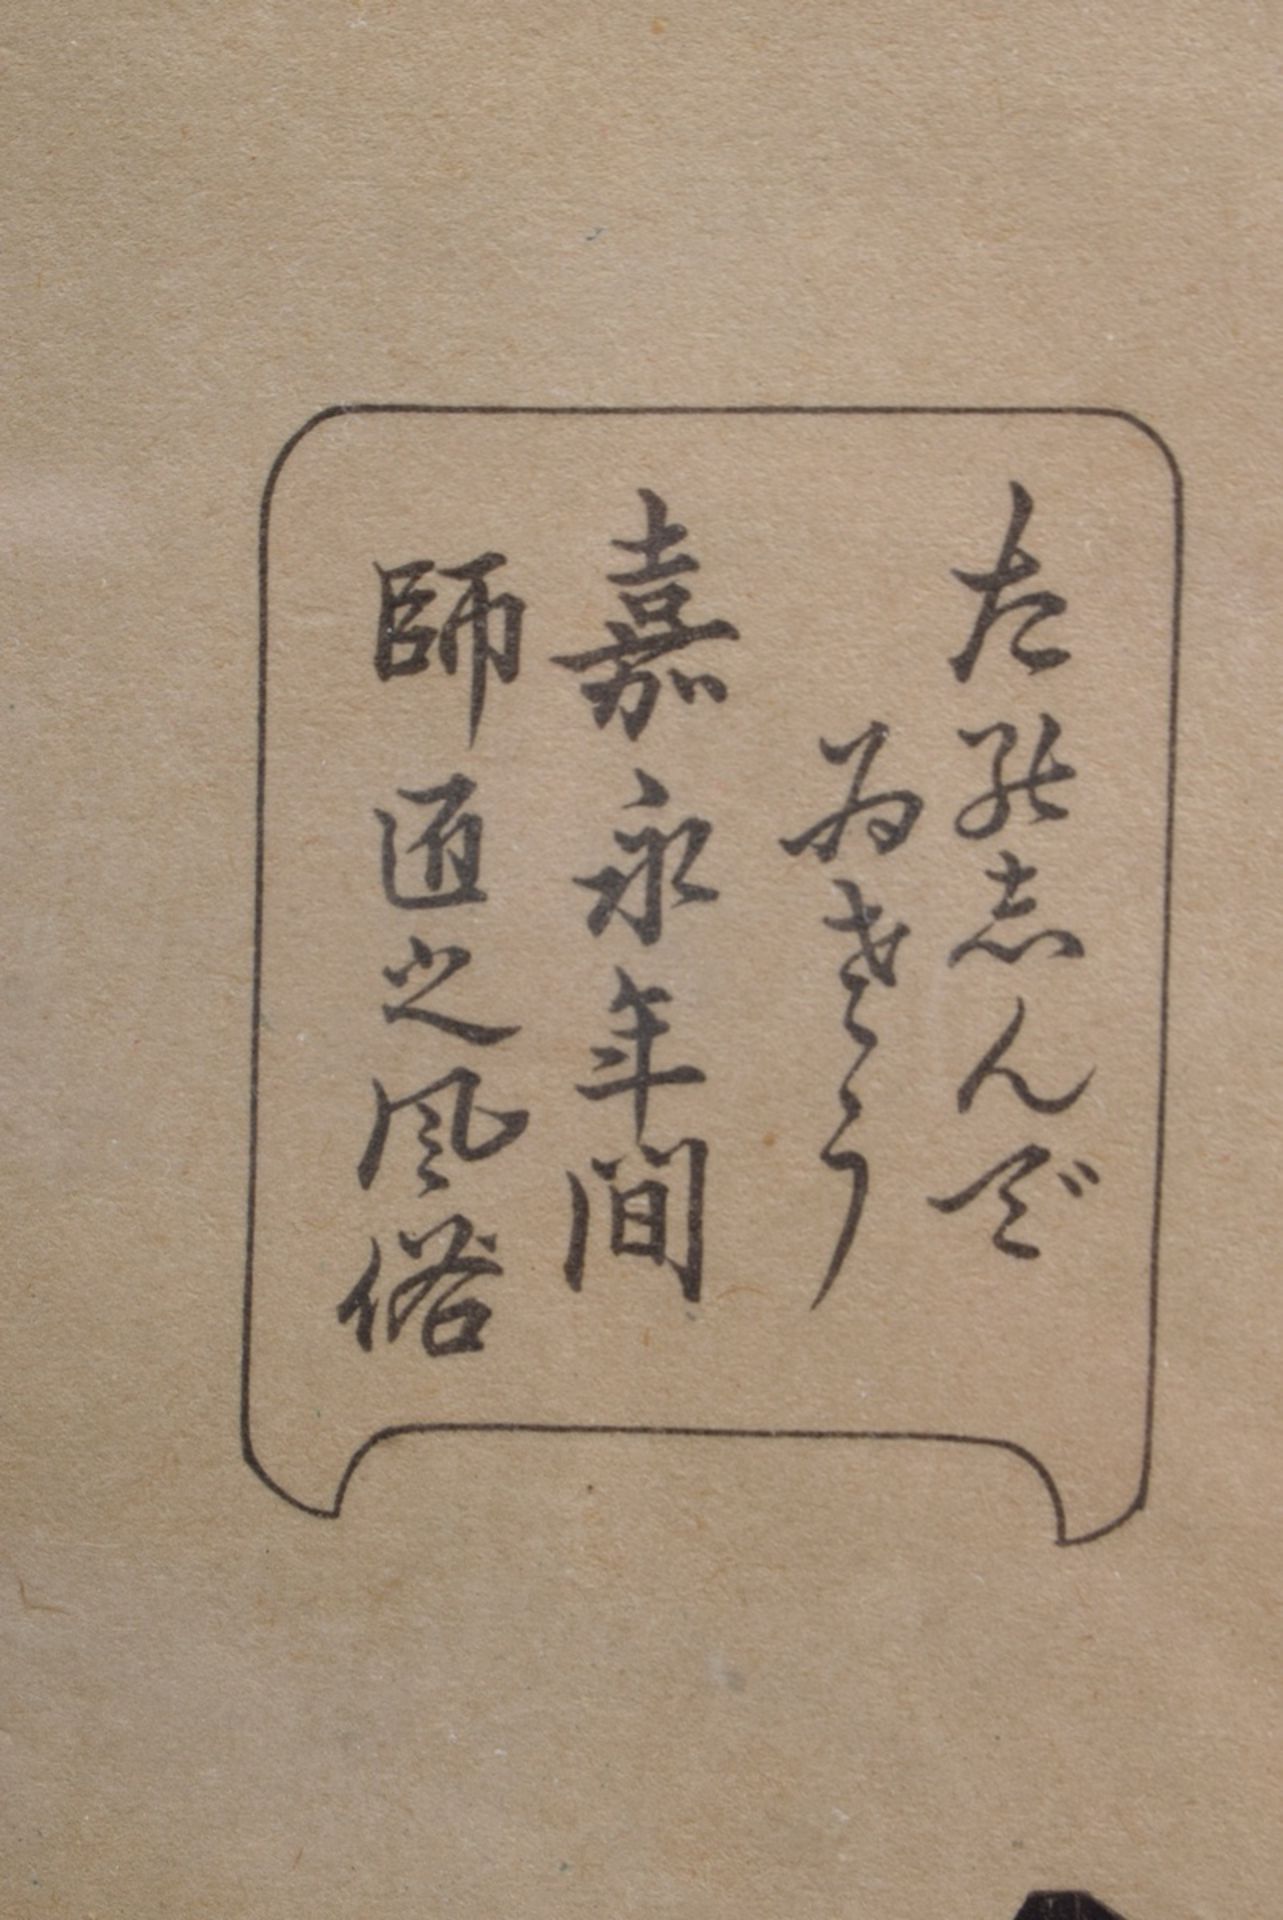 たのしんで
ゐさう
嘉永年間
師匠之風俗